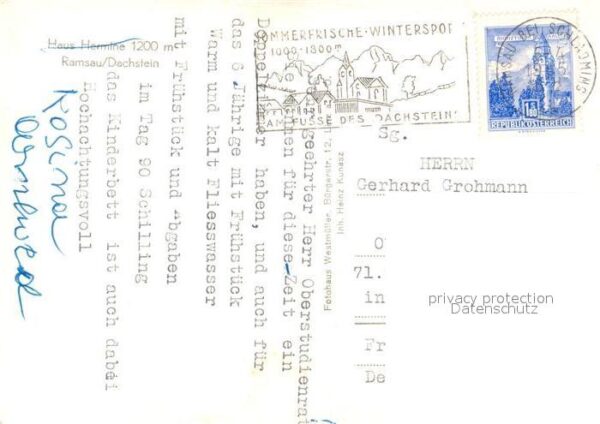 Haus Hermine 1200 m
Ramsau/Dachstein
SOMMERFRISCHE · WINTERSPORT
1000-1800 m
AM FUSSE DES DACHSTEIN
RAMSAU BEI SCHLADMING
1.80
REPUBLIK ÖSTERREICH
geehrter Herr Oberstudienrat
für diese Zeit ein
Doppelzimmer haben, und auch für
das 6 Jährige mit Frühstück
Warm und kalt Fliesswasser
mit Frühstück und Abgaben
im Tag 90 Schilling
das Kinderbett ist auch dabei
Hochachtungsvoll
Rosina
Fotohaus Westmüller, Bürgerstr. 12, Linz
Inh. Heinz Kunasz
Sg.
HERRN
Gerhard Grohmann
O
71.
in
Fr
De
privacy protection
Datenschutz